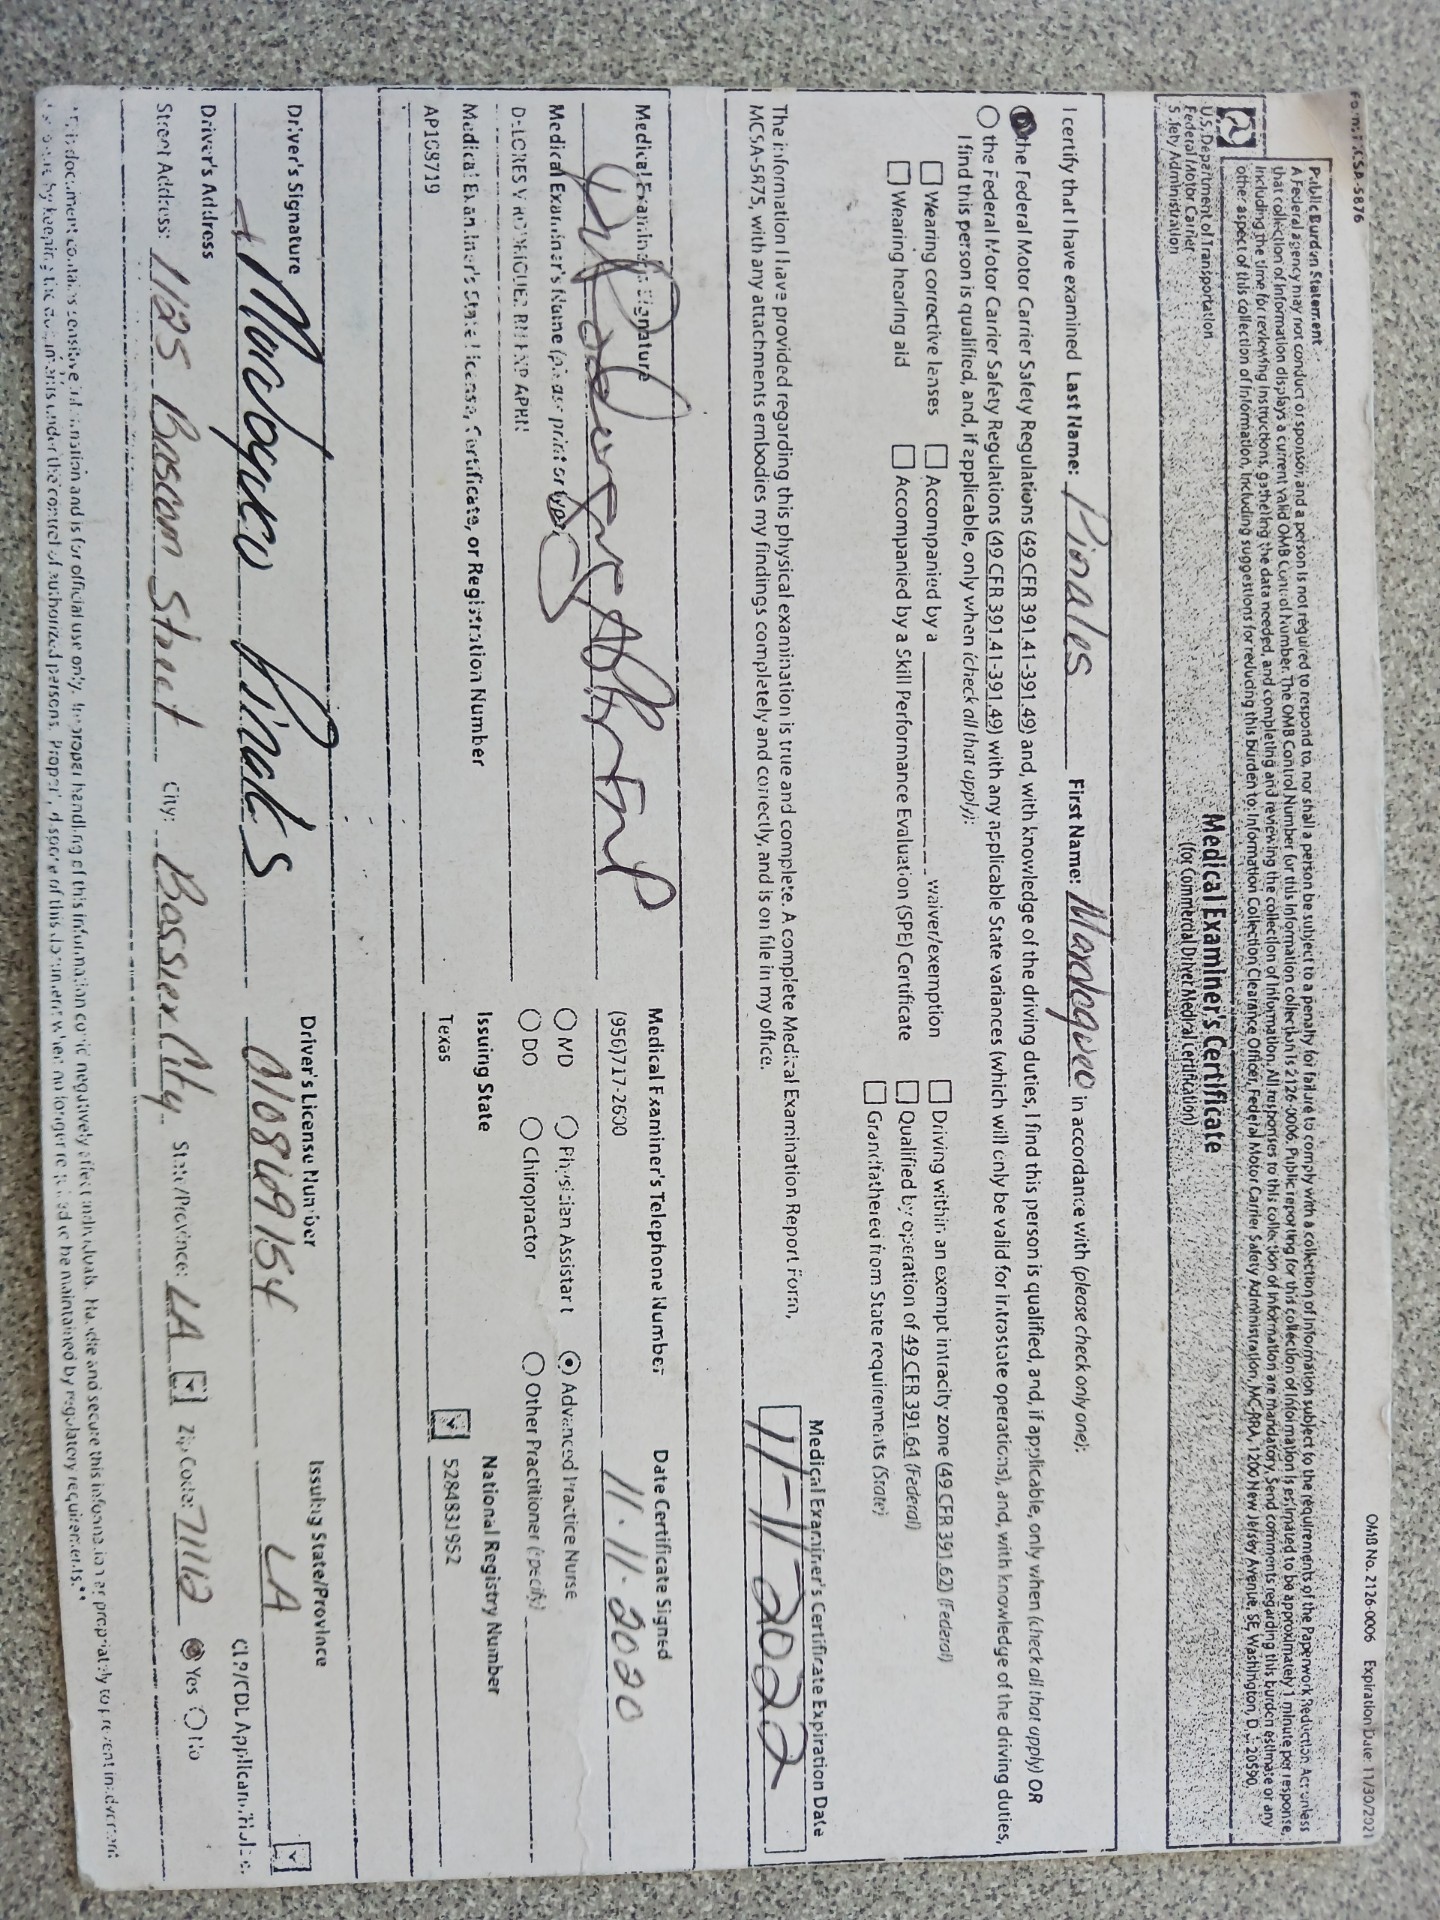 Form MCSA-5876 OMB No. 2126-0006 Expiration Date: 11/30/2021
Public Burden Statement
A Federal agency may not conduct or sponsor, and a person is not required to respond to, nor shall a person be subject to a penalty for failure to comply with a collection of information subject to the requirements of the Paperwork Reduction Act unless
that collection of information displays a current valid OMB Control Number. The OMB Control Number for this information collection is 2126-0006. Public reporting for this collection of information is estimated to be approximately 1 minute per response,
including the time for reviewing instructions, gathering the data needed, and completing and reviewing the collection of information. All responses to this collection of information are mandatory. Send comments regarding this burden estimate or any
other aspect of this collection of information, including suggestions for reducing this burden to: Information Collection Clearance Officer, Federal Motor Carrier Safety Administration, MC-RRA, 1200 New Jersey Avenue, SE, Washington, D.C. 20590.
U.S. Department of Transportation
Federal Motor Carrier
Safety Administration
Medical Examiner's Certificate
(for Commercial Driver Medical Certification)
I certify that I have examined Last Name: Pinales First Name: Mardoqueo in accordance with (please check only one):
the Federal Motor Carrier Safety Regulations (49 CFR 391.41-391.49) and, with knowledge of the driving duties, I find this person is qualified, and, if applicable, only when (check all that apply) OR
the Federal Motor Carrier Safety Regulations (49 CFR 391.41-391.49) with any applicable State variances (which will only be valid for intrastate operations), and, with knowledge of the driving duties,
I find this person is qualified, and, if applicable, only when (check all that apply):
Wearing corrective lenses Accompanied by a waiver/exemption Driving within an exempt intracity zone (49 CFR 391.62) (Federal)
Wearing hearing aid Accompanied by a Skill Performance Evaluation (SPE) Certificate Qualified by operation of 49 CFR 391.64 (Federal)
Grandfathered from State requirements (State)
The information I have provided regarding this physical examination is true and complete. A complete Medical Examination Report Form,
MCSA-5875, with any attachments embodies my findings completely and correctly, and is on file in my office.
Medical Examiner's Certificate Expiration Date
11-11-2022
Medical Examiner's Signature Medical Examiner's Telephone Number Date Certificate Signed
(956)717-2600 11-11-2020
Medical Examiner's Name (please print or type)
MD Physician Assistant Advanced Practice Nurse
DELORES V RODRIGUEZ RN FNP APRN
DO Chiropractor Other Practitioner (specify)
Medical Examiner's State License, Certificate, or Registration Number Issuing State National Registry Number
AP108719 Texas 5284831952
Driver's Signature Driver's License Number Issuing State/Province
Mardoqueo Pinales 010869154 LA
Driver's Address CLP/CDL Applicant/Holder
Street Address: 1125 Bascom Street City: Bossier City State/Province: LA Zip Code: 71112 Yes No
**This document contains sensitive information and is for official use only. Improper handling of this information could negatively affect individuals. Handle and secure this information appropriately to prevent inadvertent
disclosure by keeping the documents under the control of authorized persons. Properly dispose of this document when no longer required to be maintained by regulatory requirements.**